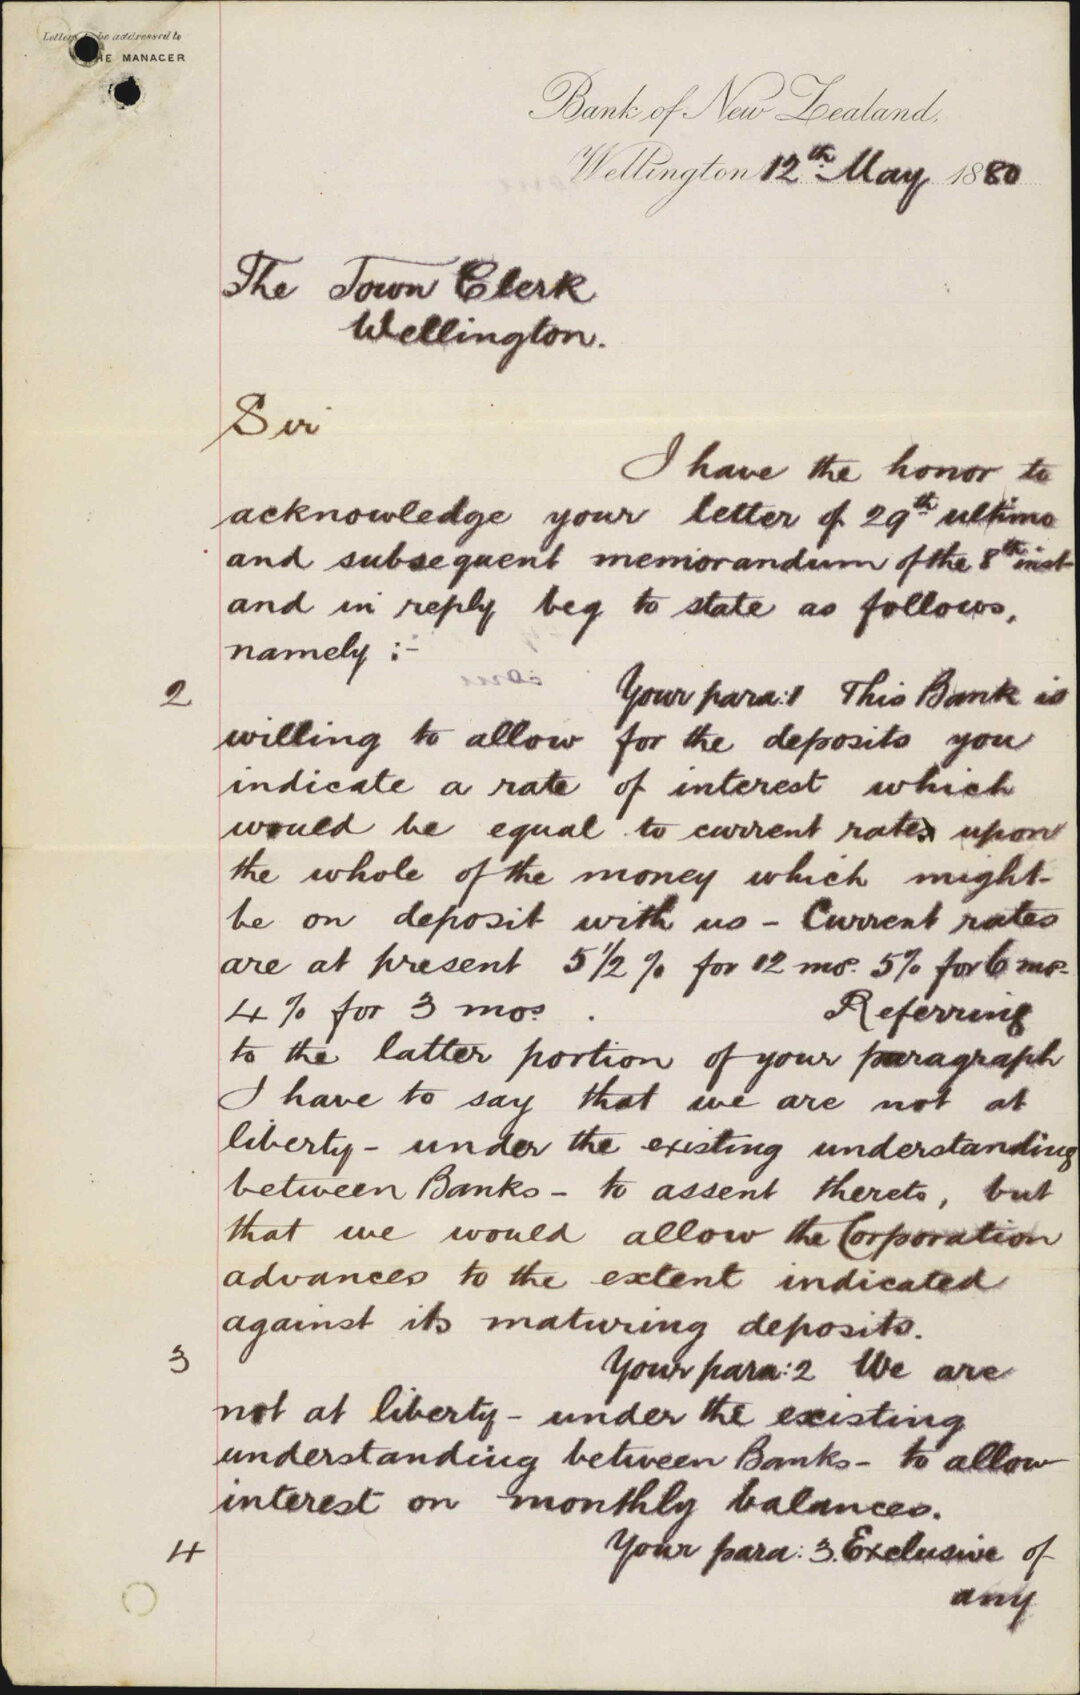 Letters to be addressed to
THE MANAGER
Bank of New Zealand,
Wellington 12th May 1880
The Town Clerk
Wellington.
Sir
I have the honor to
acknowledge your letter of 29th ultimo
and subsequent memorandum of the 8th inst
and in reply beg to state as follows,
namely :-
2 Your para: 1 This Bank is
willing to allow for the deposits you
indicate a rate of interest which
would be equal to current rates upon
the whole of the money which might
be on deposit with us - Current rates
are at present 5 1/2 % for 12 mos. 5% for 6 mos.
4 % for 3 mos. Referring
to the latter portion of your paragraph
I have to say that we are not at
liberty - under the existing understanding
between Banks - to assent thereto, but
that we would allow the Corporation
advances to the extent indicated
against its maturing deposits.
3 Your para: 2 We are
not at liberty - under the existing
understanding between Banks - to allow
interest on monthly balances.
4 Your para: 3. Exclusive of
any